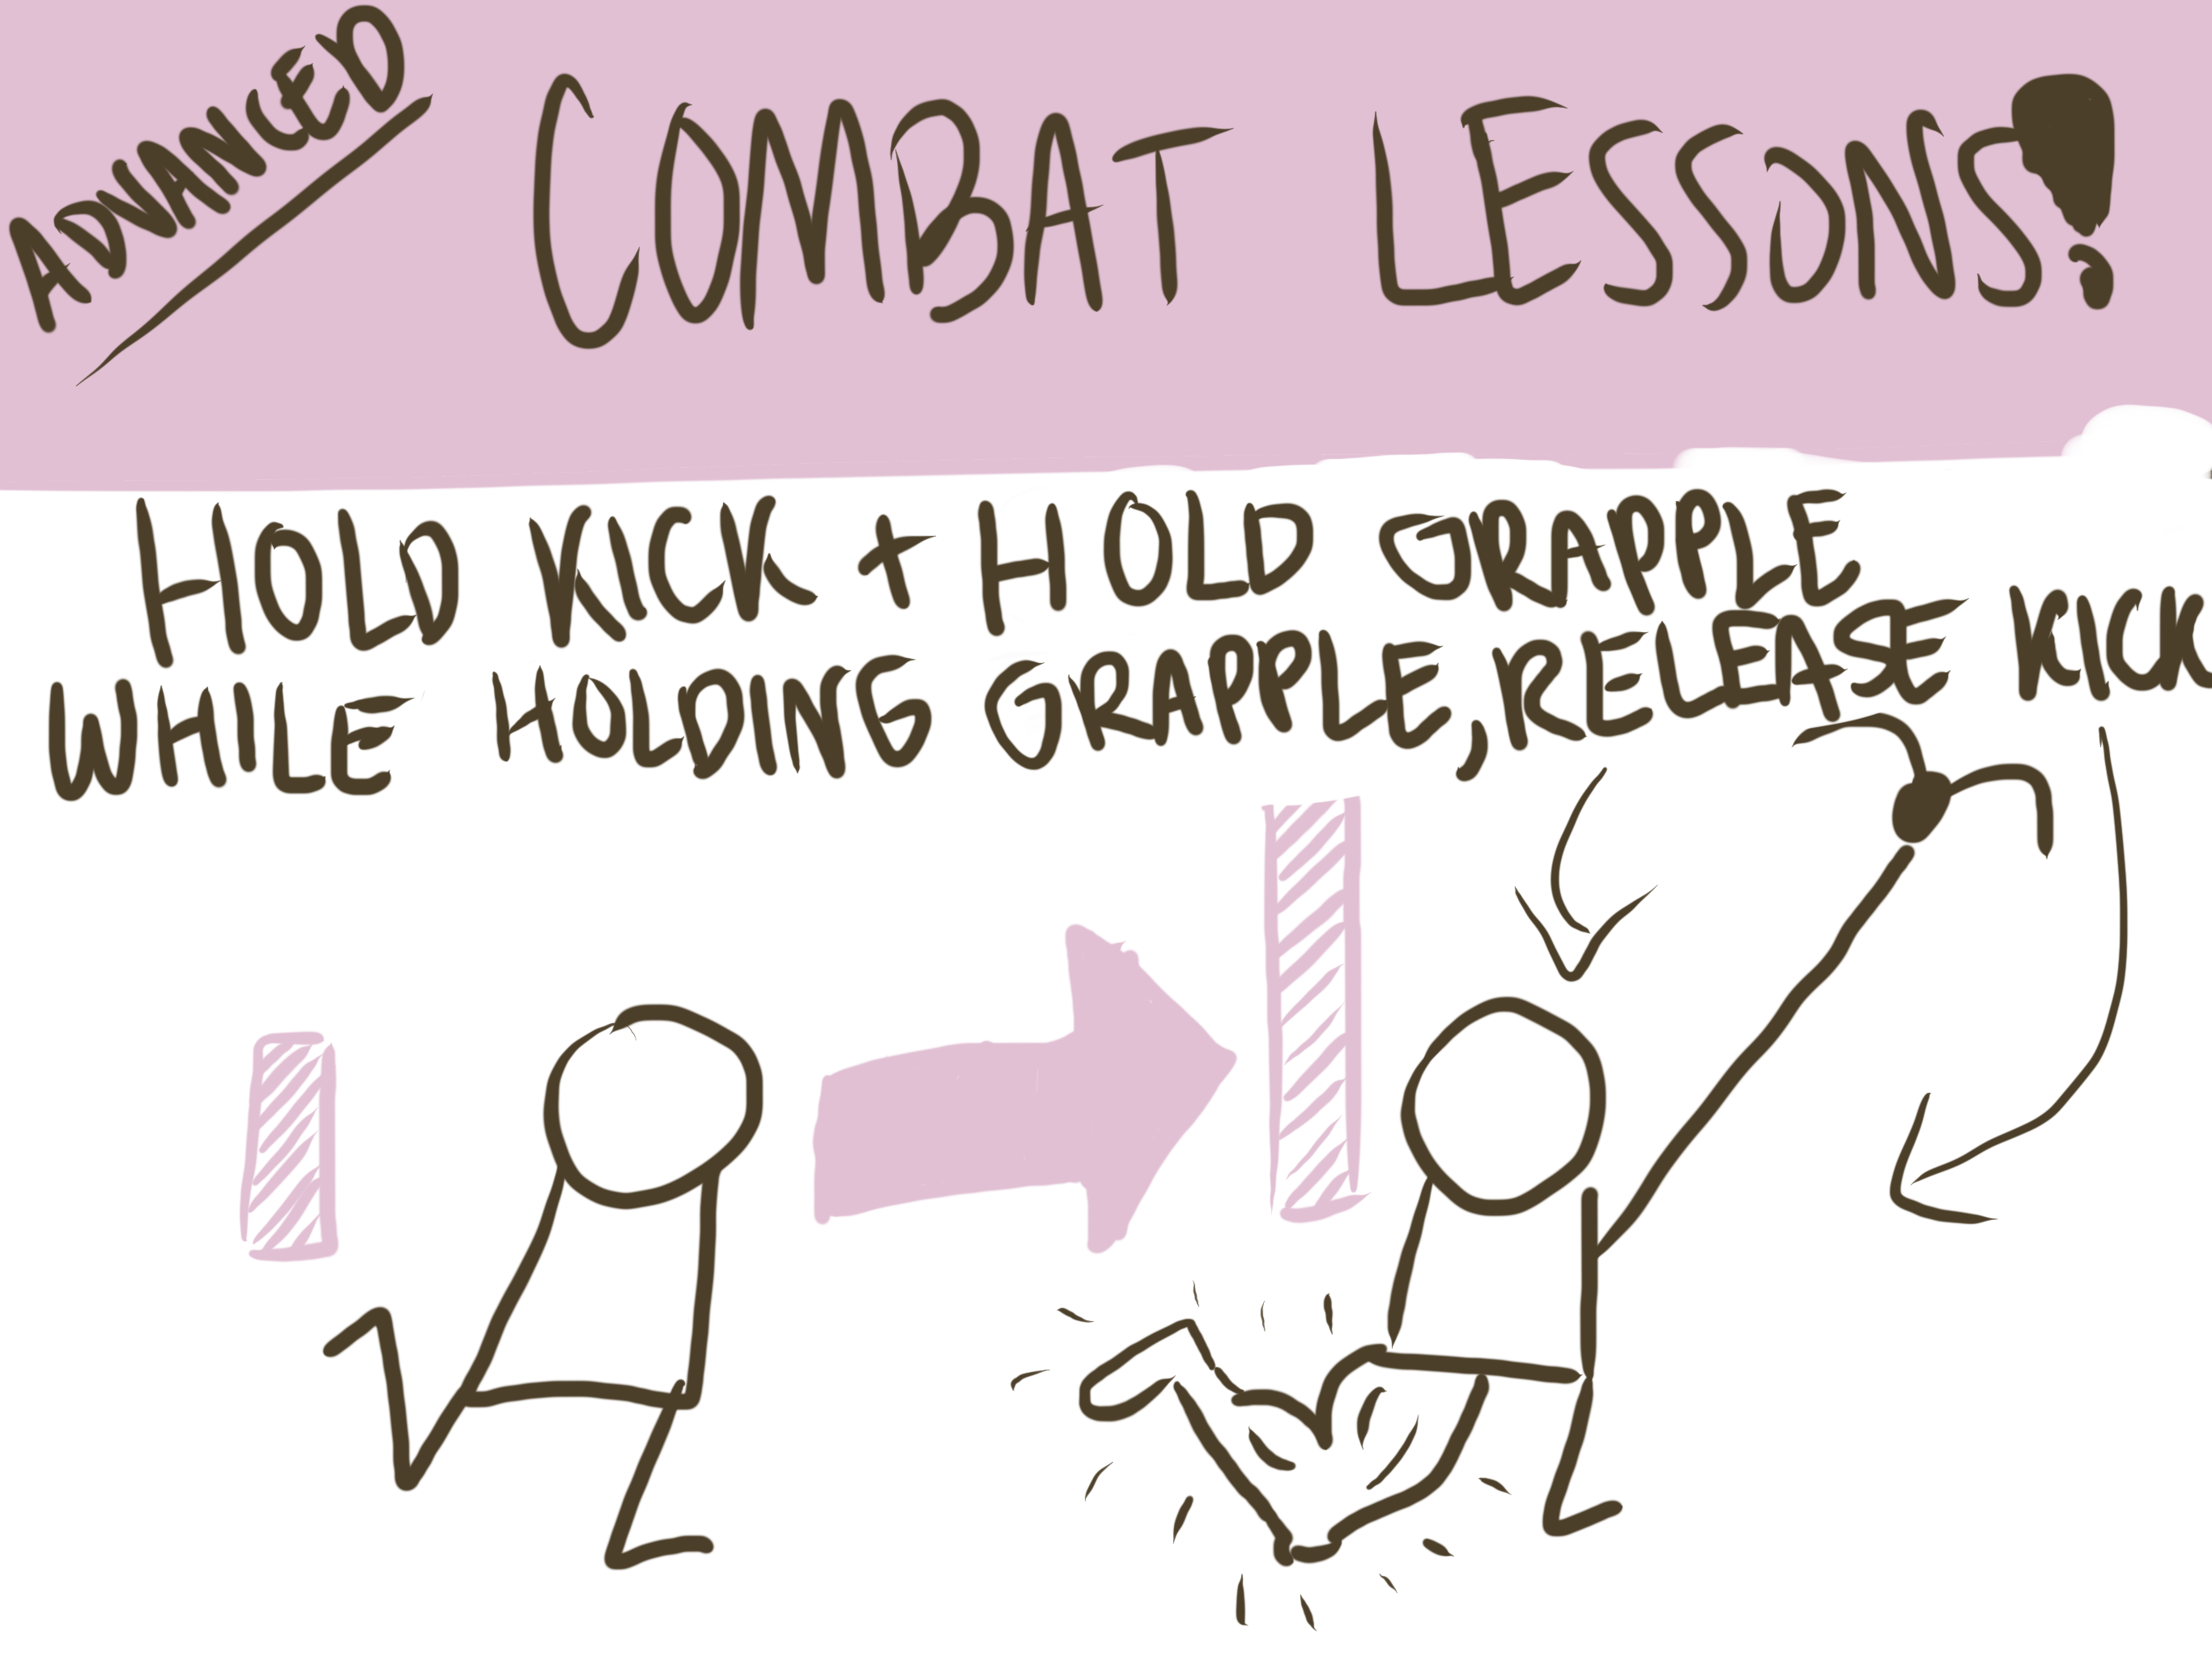 ADVANCED
COMBAT LESSONS!
HOLD KICK + HOLD GRAPPLE
WHILE HOLDING GRAPPLE, RELEASE KICK